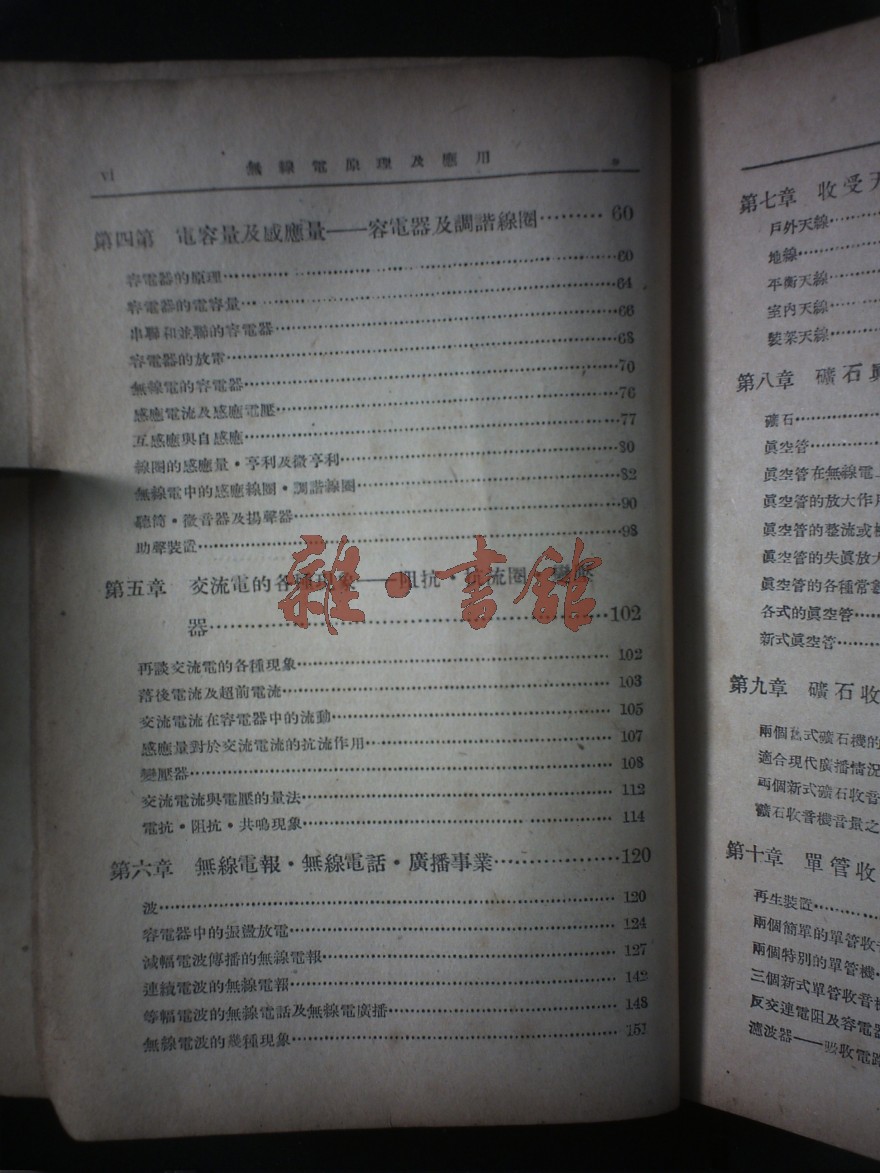 vi 無線電原理及應用
第四第 電容量及感應量——容電器及調諧線圈……… 60
容電器的原理……………………60
容電器的電容量……………………64
串聯和並聯的容電器……………………66
容電器的放電……………………68
無線電的容電器……………………70
感應電流及感應電壓……………………76
互感應與自感應……………………77
線圈的感應量·亨利及微亨利……………………80
無線電中的感應線圈·調諧線圈……………………82
聽筒·微音器及揚聲器……………………90
助聲裝置……………………98
第五章 交流電的各種現象——阻抗·抗流圈·變壓
器……………………102
再談交流電的各種現象……………………102
落後電流及超前電流……………………103
交流電流在容電器中的流動……………………105
感應量對於交流電流的抗流作用……………………107
變壓器……………………108
交流電流與電壓的量法……………………112
電抗·阻抗·共鳴現象……………………114
第六章 無線電報·無線電話·廣播事業……………120
波……………………120
容電器中的振盪放電……………………124
減幅電波傳播的無線電報……………………127
連續電波的無線電報……………………142
等幅電波的無線電話及無線電廣播……………………148
無線電波的幾種現象……………………151
雜·書館
第七章 收受天
戶外天線……
地線……
平衡天線……
室內天線……
裝架天線……
第八章 礦石與
礦石……
眞空管……
眞空管在無線電
眞空管的放大作用
眞空管的整流或
眞空管的失眞放大
眞空管的各種常
各式的眞空管……
新式眞空管……
第九章 礦石收
兩個舊式礦石機的
適合現代廣播情況
兩個新式礦石收音
礦石收音機音量之
第十章 單管收
再生裝置……
兩個簡單的單管收音
兩個特別的單管機·
三個新式單管收音機
反交連電阻及容電器
濾波器——吸收電路